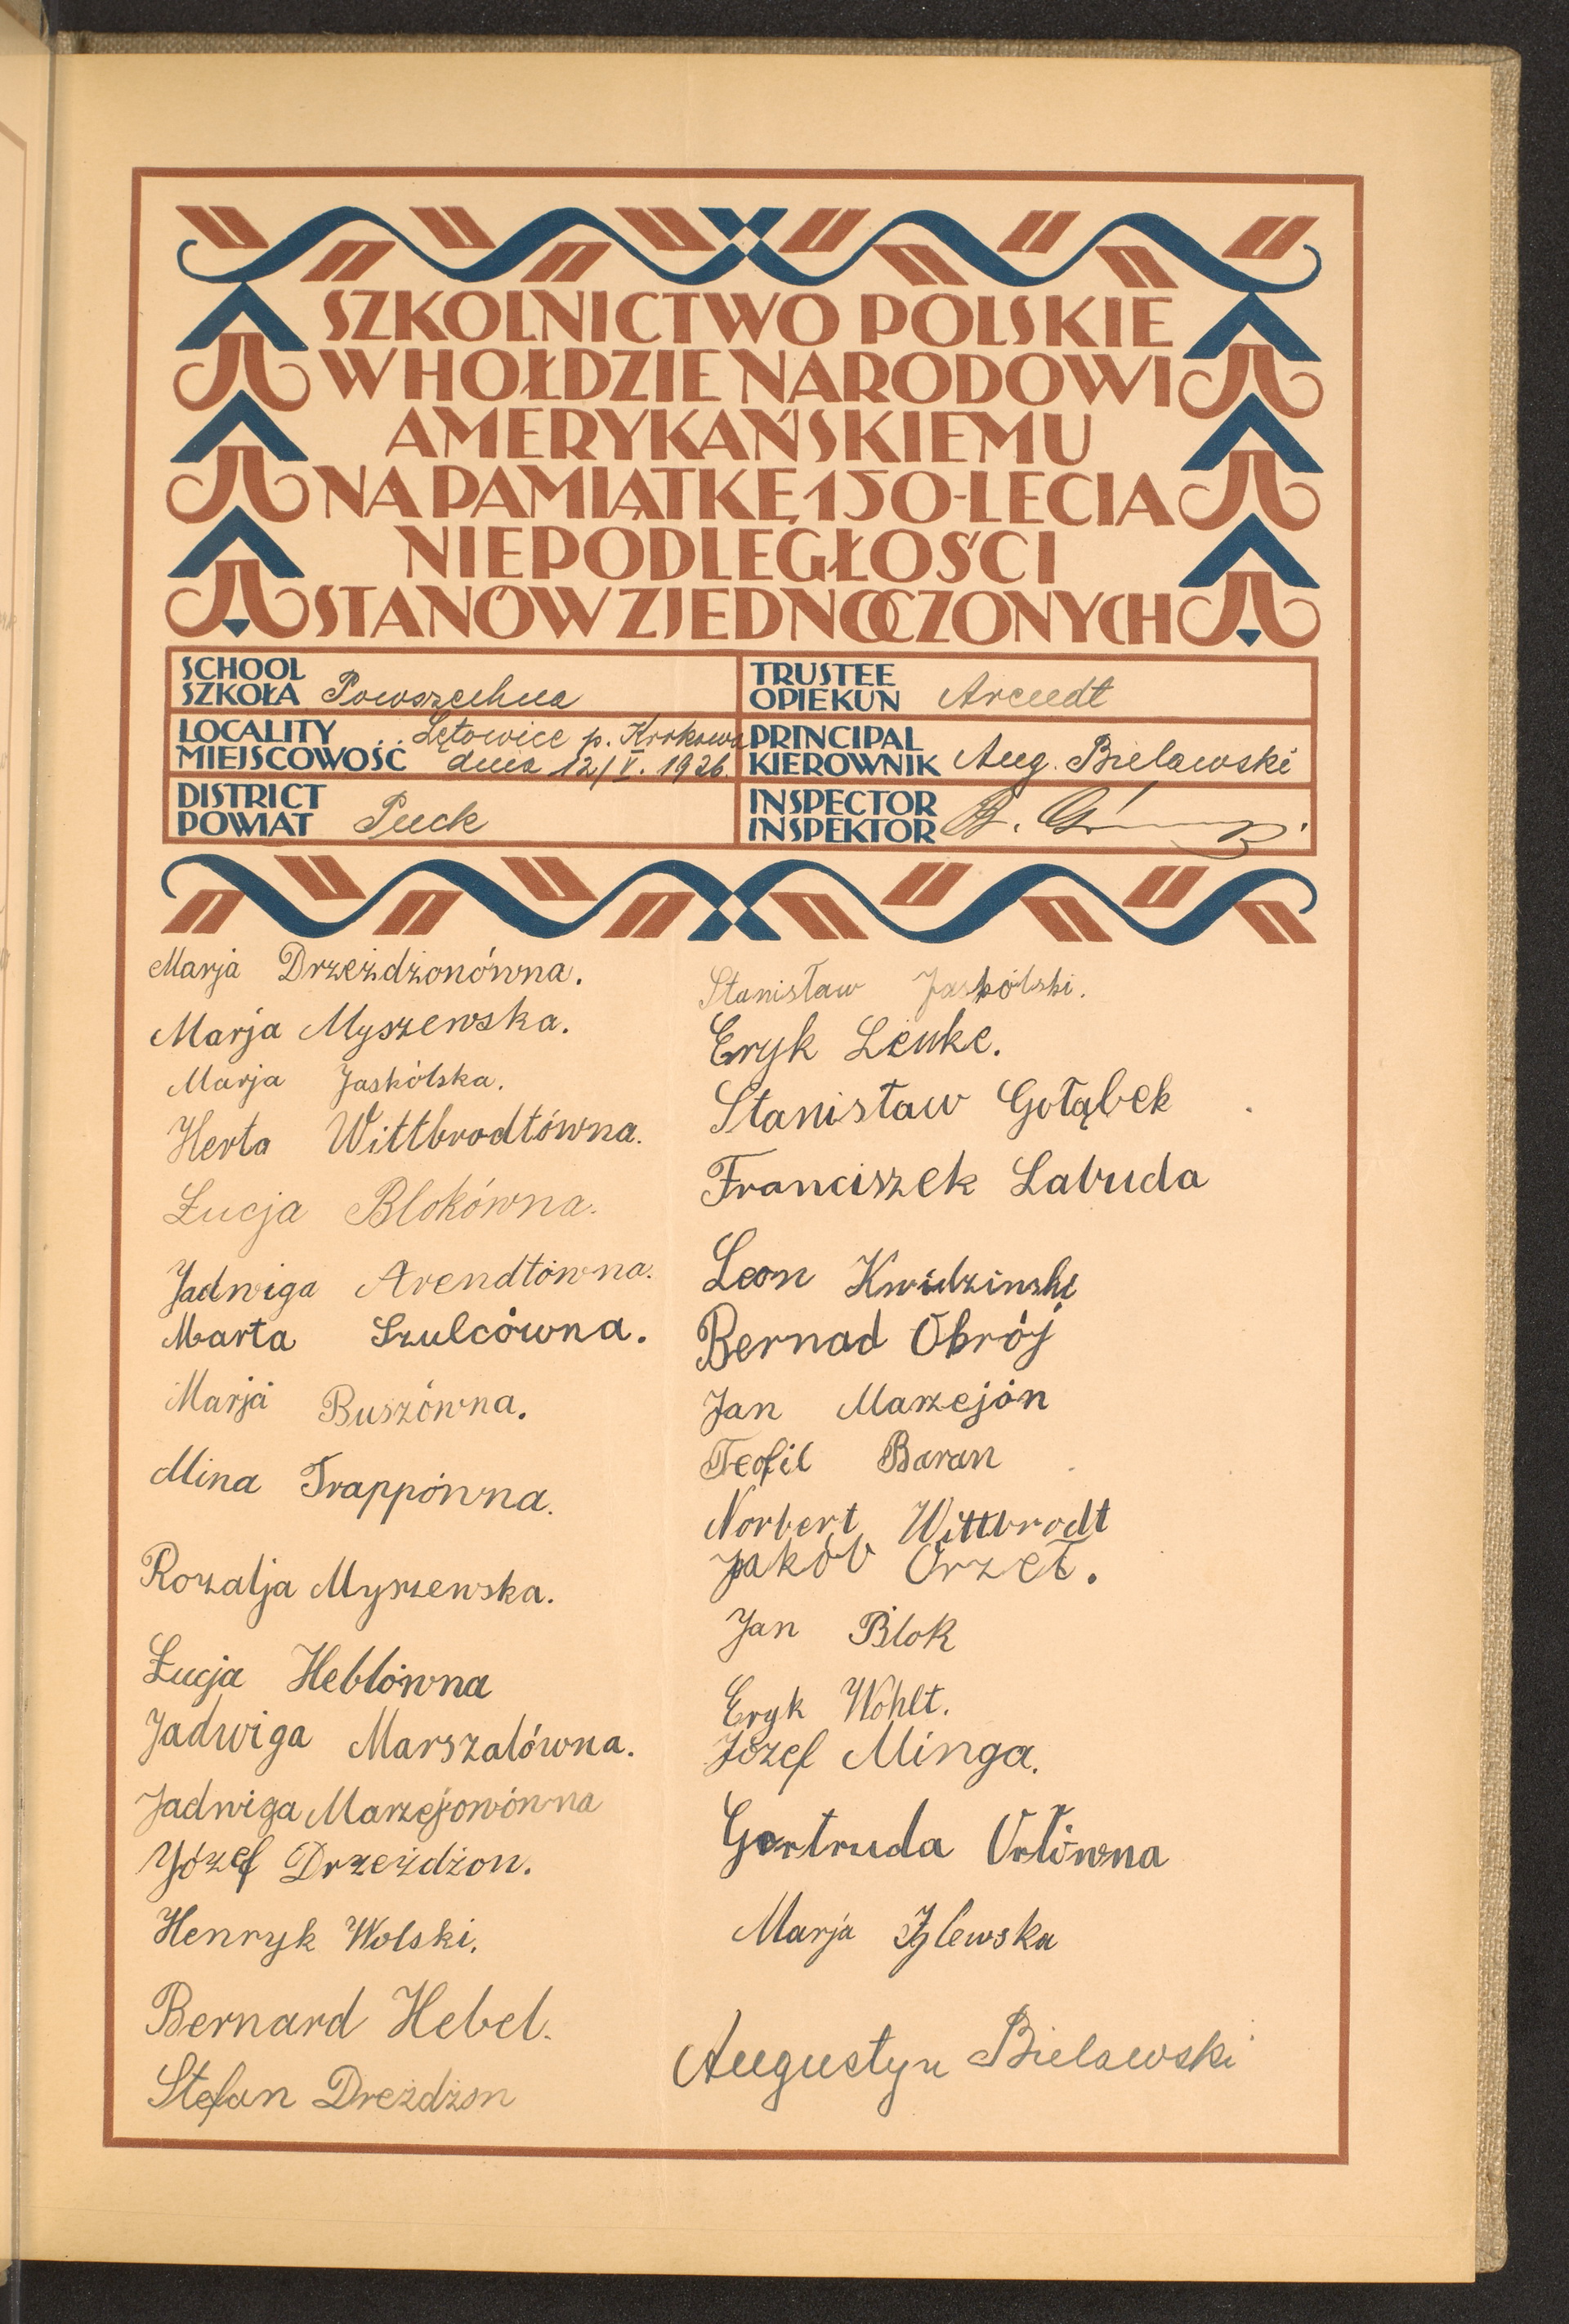 SZKOLNICTWO POLSKIE
W HOŁDZIE NARODOWI
AMERYKAŃSKIEMU
NA PAMIĄTKĘ 150-LECIA
NIEPODLEGŁOŚCI
STANÓW ZJEDNOCZONYCH
SCHOOL
SZKOŁA Powszechna
LOCALITY
MIEJSCOWOŚĆ Lętowice p. Krokowa
dnia 12/V. 1926.
DISTRICT
POWIAT Puck
TRUSTEE
OPIEKUN Arendt
PRINCIPAL
KIEROWNIK Aug. Bielawski
INSPECTOR
INSPEKTOR
Marja Drzeżdżonówna.
Marja Myszewska.
Marja Jaskólska.
Herta Wittbrodtówna.
Łucja Blokówna.
Jadwiga Arendtówna.
Marta Szulcówna.
Marja Buszówna.
Mina Trappówna.
Rozalja Myszewska.
Łucja Heblówna
Jadwiga Marszalówna.
Jadwiga Marzejonówna
Józef Drzeżdżon.
Henryk Wolski.
Bernard Hebel.
Stefan Dreżdżon
Stanisław Jaskólski.
Eryk Leuke.
Stanisław Gołąbek
Franciszek Labuda
Leon Kwidzinski
Bernad Obrój
Jan Marzejón
Teofil Baran
Norbert Wittbrodt
Jakób Orzeł.
Jan Blok
Eryk Wohlt.
Józef Minga.
Gertruda Orłówna
Marja
Augustyn Bielawski